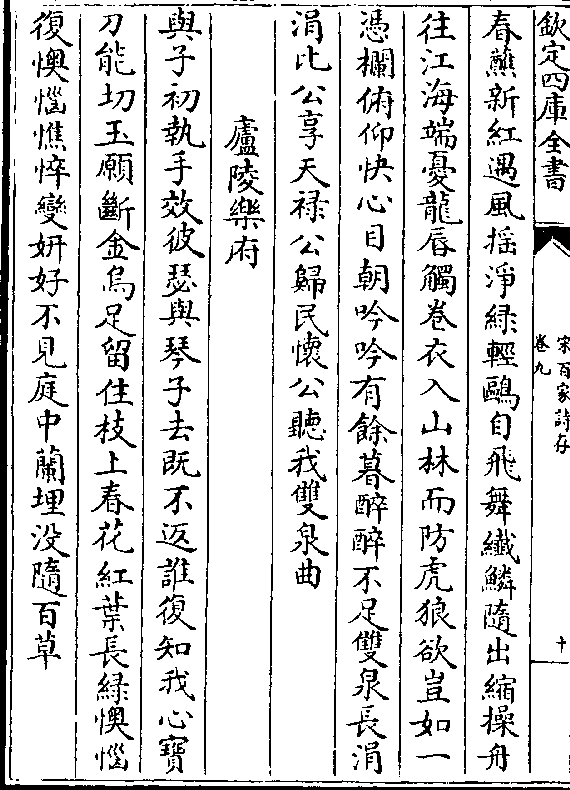 欽定四庫全書
宋百家詩存
卷九
十
春蕉新紅遇風揺淨綠輕鷗自飛舞纖鱗隨出縮操舟
往江海端憂龍唇觸巻衣入山林而防虎狼欲豈如一
憑欄俯仰快心目朝吟吟有餘暮醉醉不足雙泉長涓
涓比公享天禄公歸民懷公聽我雙泉曲
廬陵樂府
與子初執手效彼瑟與琴子去既不返誰復知我心寳
刀能切玉願斷金烏足留住枝上春花紅葉長緑懊惱
復懊惱憔悴變妍好不見庭中蘭埋没隨百草